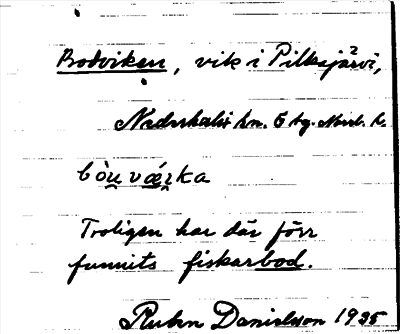 Bodviken, vik i Pilkajärvi,
Nederkalix sn. C hg. Nbtt. l.
bòu̯væ̀ı̯ka
Troligen har där förr
funnits fiskarbod.
Ruben Danielsson 1935